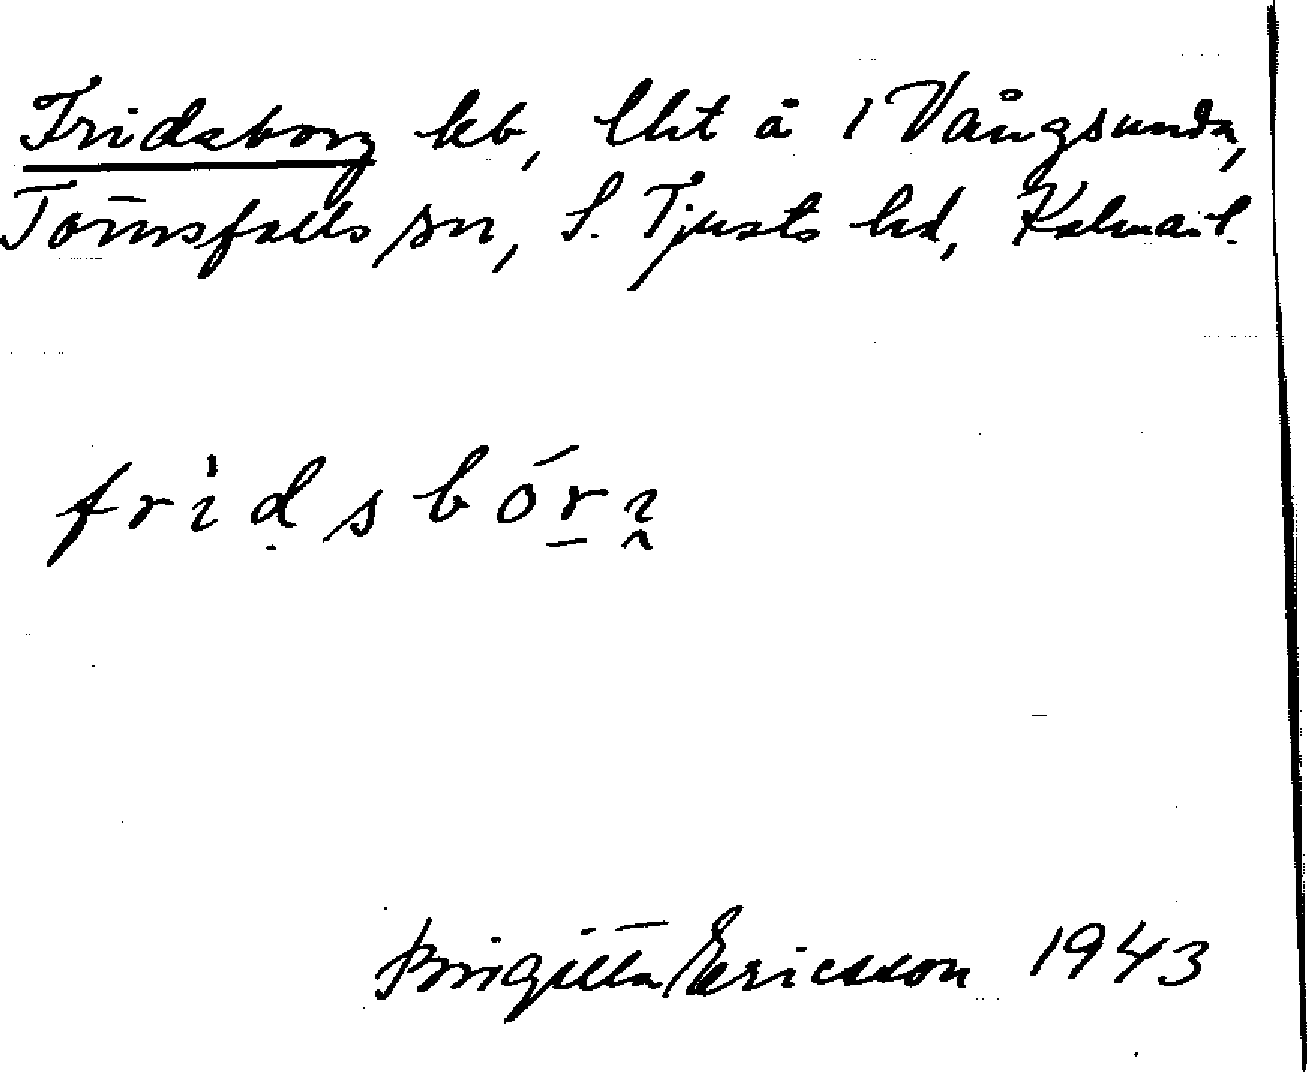 Fridsborg kb, lht å 1 Vångsunda,
Törnsfalls sn, S. Tjusts hd, Kalmar l.
fri̇̀ḍsbór̲ı̭
Birgitta Ericsson 1943